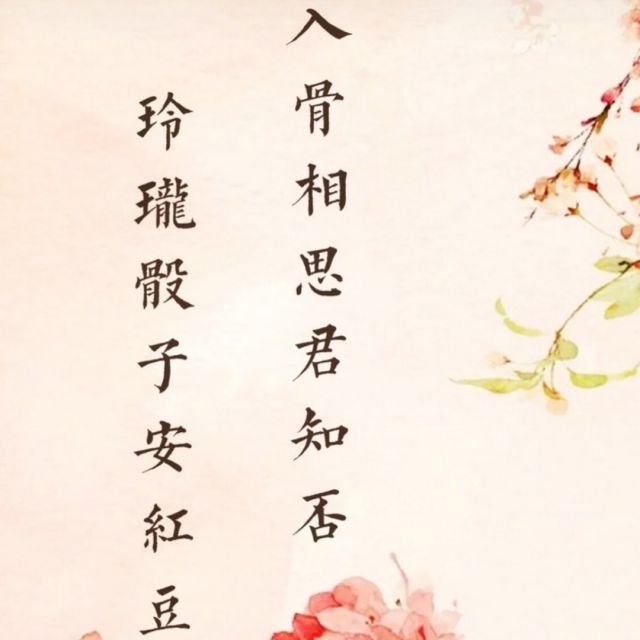 入骨相思君知否
玲瓏骰子安紅豆